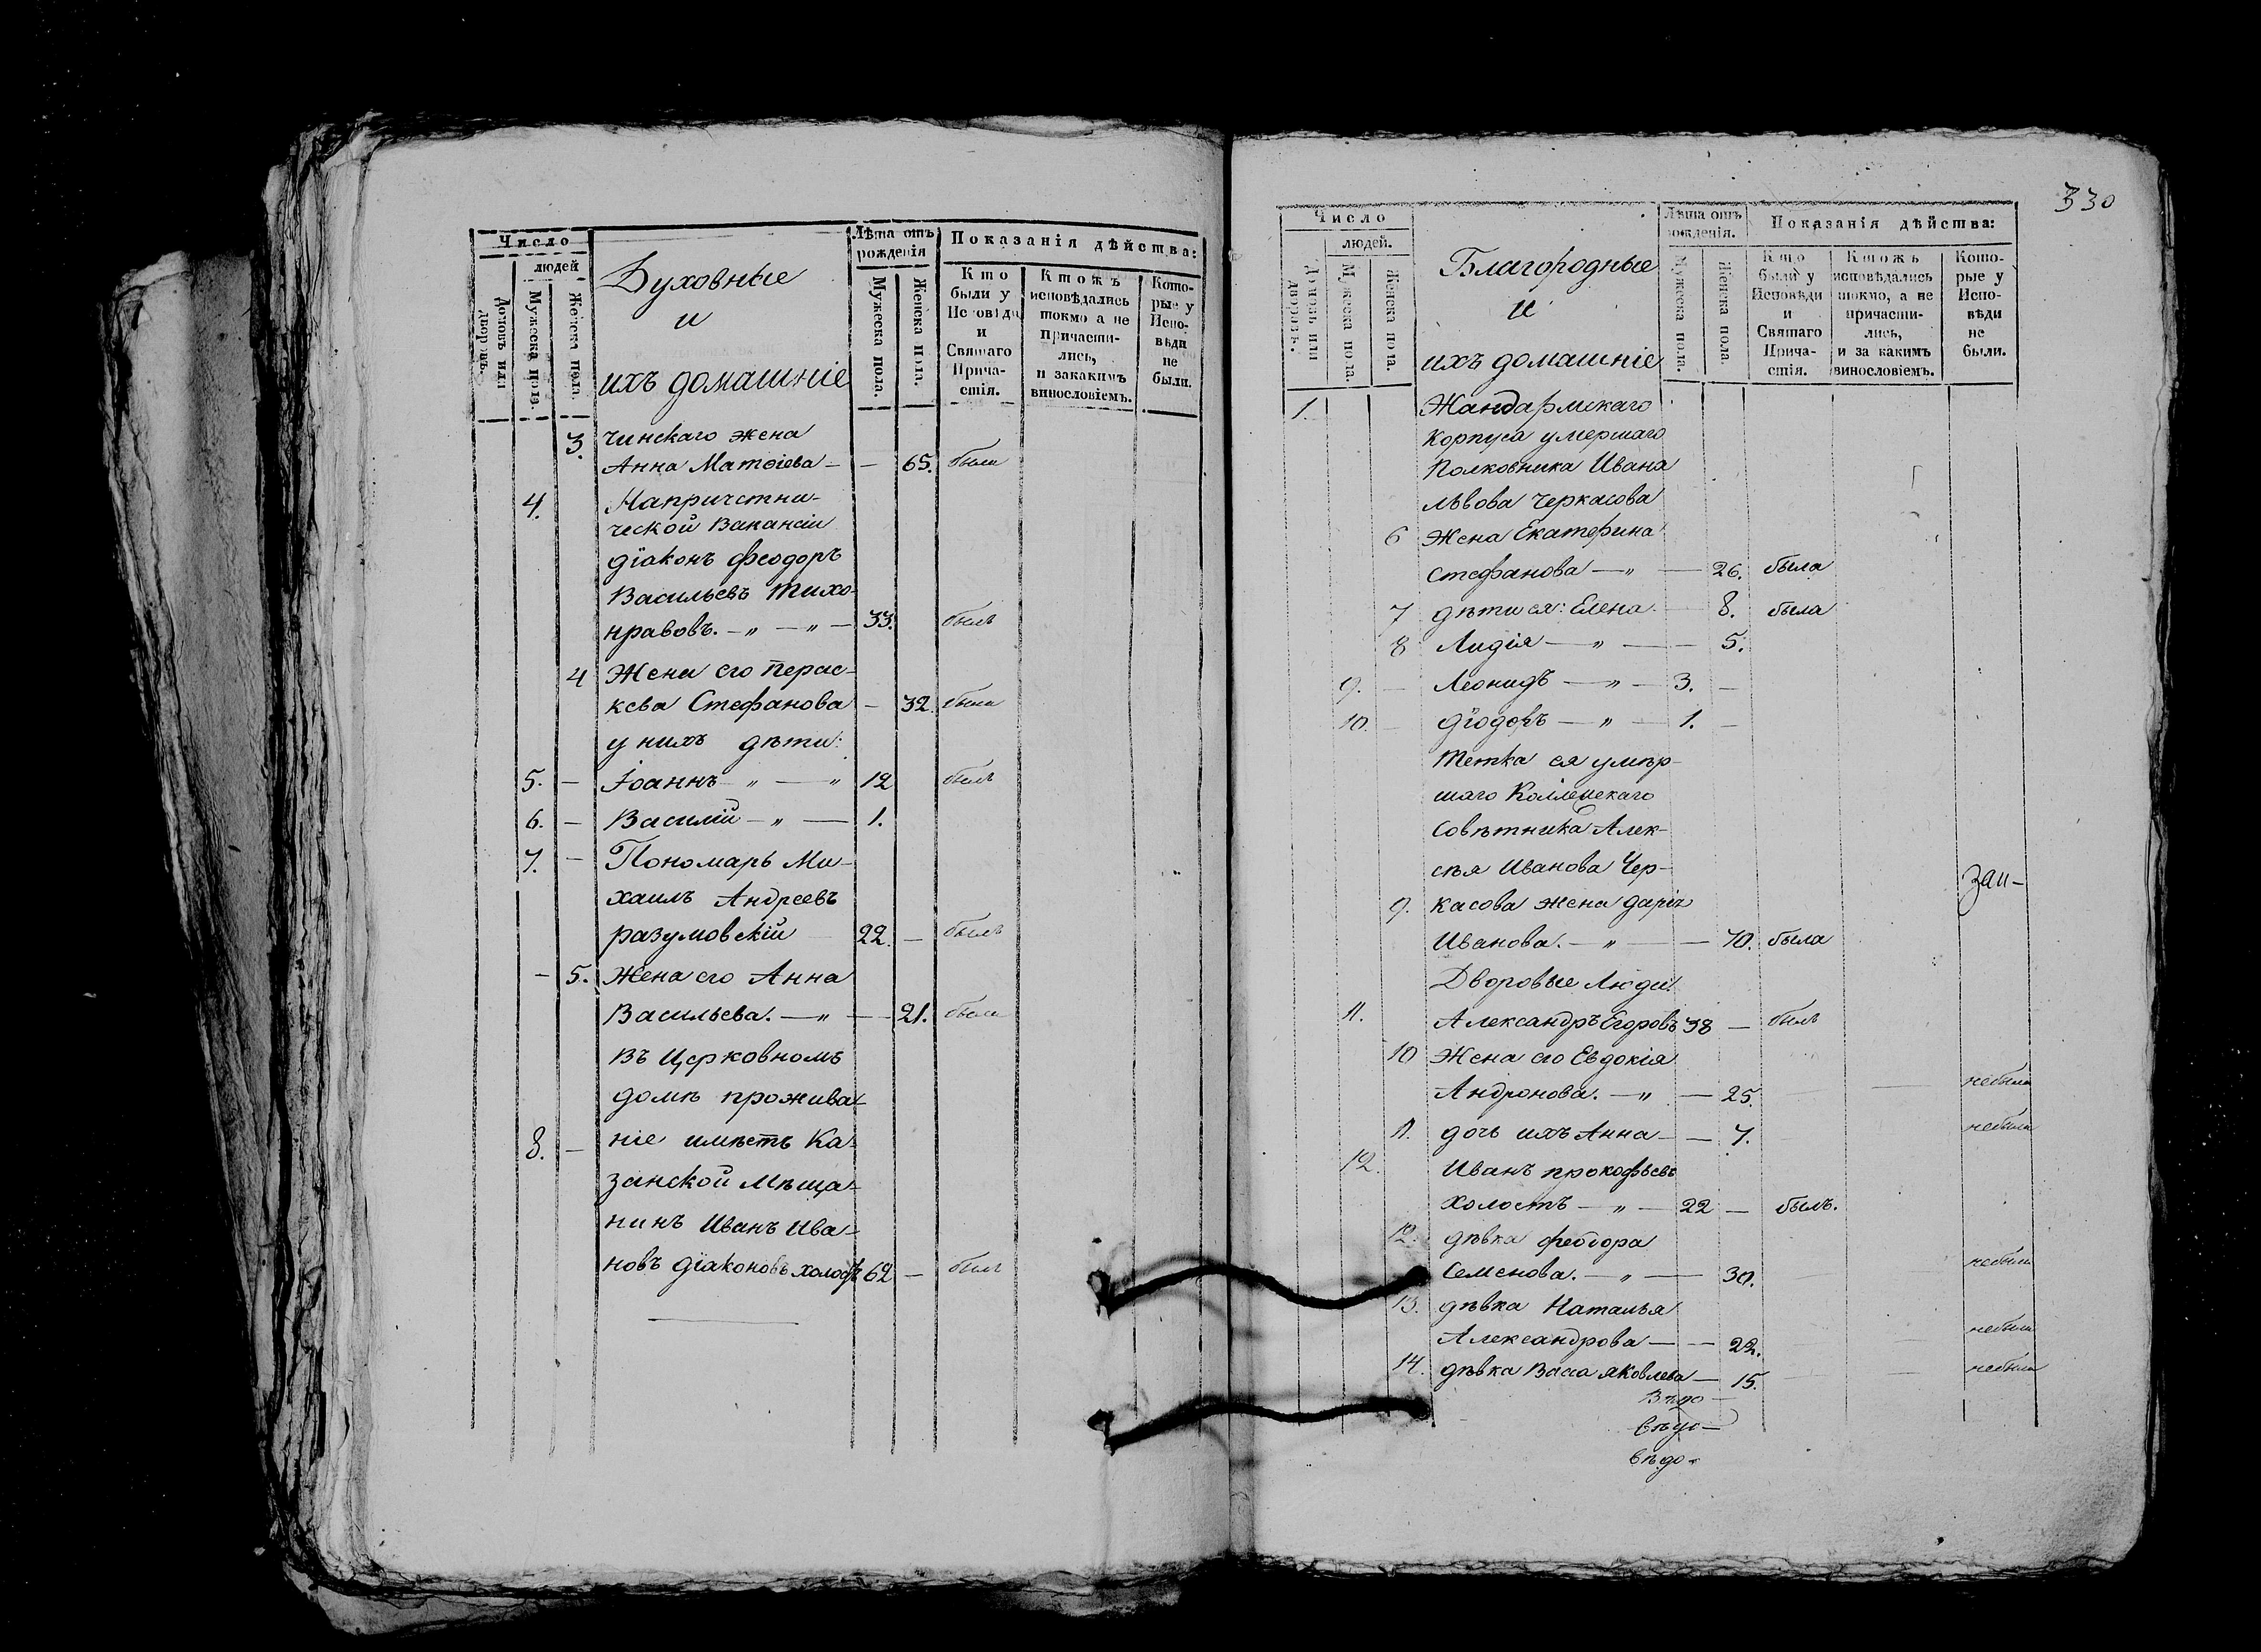 Число
людей
Домовъ или дворовъ.
Мужеска пола.
Женска пола.
Духовные
и
ихъ домашніе
Лѣта отъ
рожденія
Мужеска пола.
Женска пола.
Показанія дѣйства:
Кто
были у
Исповѣди
и
Святаго
Прича-
стія.
Ктожъ
исповѣдались
токмо а не
причасти-
лись,
и закакимъ
винословіемъ.
Кото-
рые у
Испо-
вѣди
не
были.
3. чинскаго жена
Анна Матѳіева — — 65. была
4. Напричетни-
ческой Вакансіи
діаконъ Феодоръ
Васильевъ Тихо-
нравовъ. — „ — „ — 33. былъ
4 Жена его Перас-
кева Стефанова — 32. была
у нихъ дѣти:
5. — Іоаннъ „ — „ 12 былъ
6. — Василій — „ — 1.
7. — Пономарь Ми-
хаилъ Андреевъ
разумовскій 22. — былъ
— 5. Жена его Анна
Васильева. — „ — — 21. была
Въ Церковномъ
домѣ прожива-
8. — ніе имѣетъ Ка-
занской Мѣща-
нинъ Иванъ Ива-
новъ діаконовъ холостъ 62 — былъ
330
Число
людей.
Домовъ или дворовъ.
Мужеска пола.
Женска пола.
Благородные
и
ихъ домашніе
Лѣта отъ
рожденія.
Мужеска пола.
Женска пола
Показанія дѣйства:
Кто
были у
Исповѣди
и
Святаго
Прича-
стія.
Ктожъ
исповѣдались
токмо, а не
причасти-
лись,
и за какимъ
винословіемъ.
Кото-
рые у
Испо-
вѣди
не
были.
1. Жандармскаго
Корпуса умершаго
Полковника Ивана
львова Черкасова
6 Жена Екатерина
Стефанова — „ — 26. была
7 дѣти ея: Елена — 8. была
8 Лидія — „ — — 5.
9. — Леонидъ — „ — 3. —
10. — Ѳіодоръ — „ — 1. —
Тетка ея умѣр-
шаго Коллежскаго
Совѣтника Алек-
сѣя Иванова Чер-
9. касова жена дарія
Иванова. — „ — — 70. была
Дворовые Люди.
11. Александръ Егоровъ 38 — былъ
10 Жена его Евдокія
Андронова. — „ — 25. небыла
11. дочь ихъ Анна — — 7. небыла
12. Иванъ прокофьевъ
Холостъ — „ — 22 — былъ.
12. дѣвка феодора
Семенова. — „ — 30. небыла
13. дѣвка Наталья
Александрова — — 22. небыла
14. дѣвка Васса яковлева — 15. небыла
вѣдо-